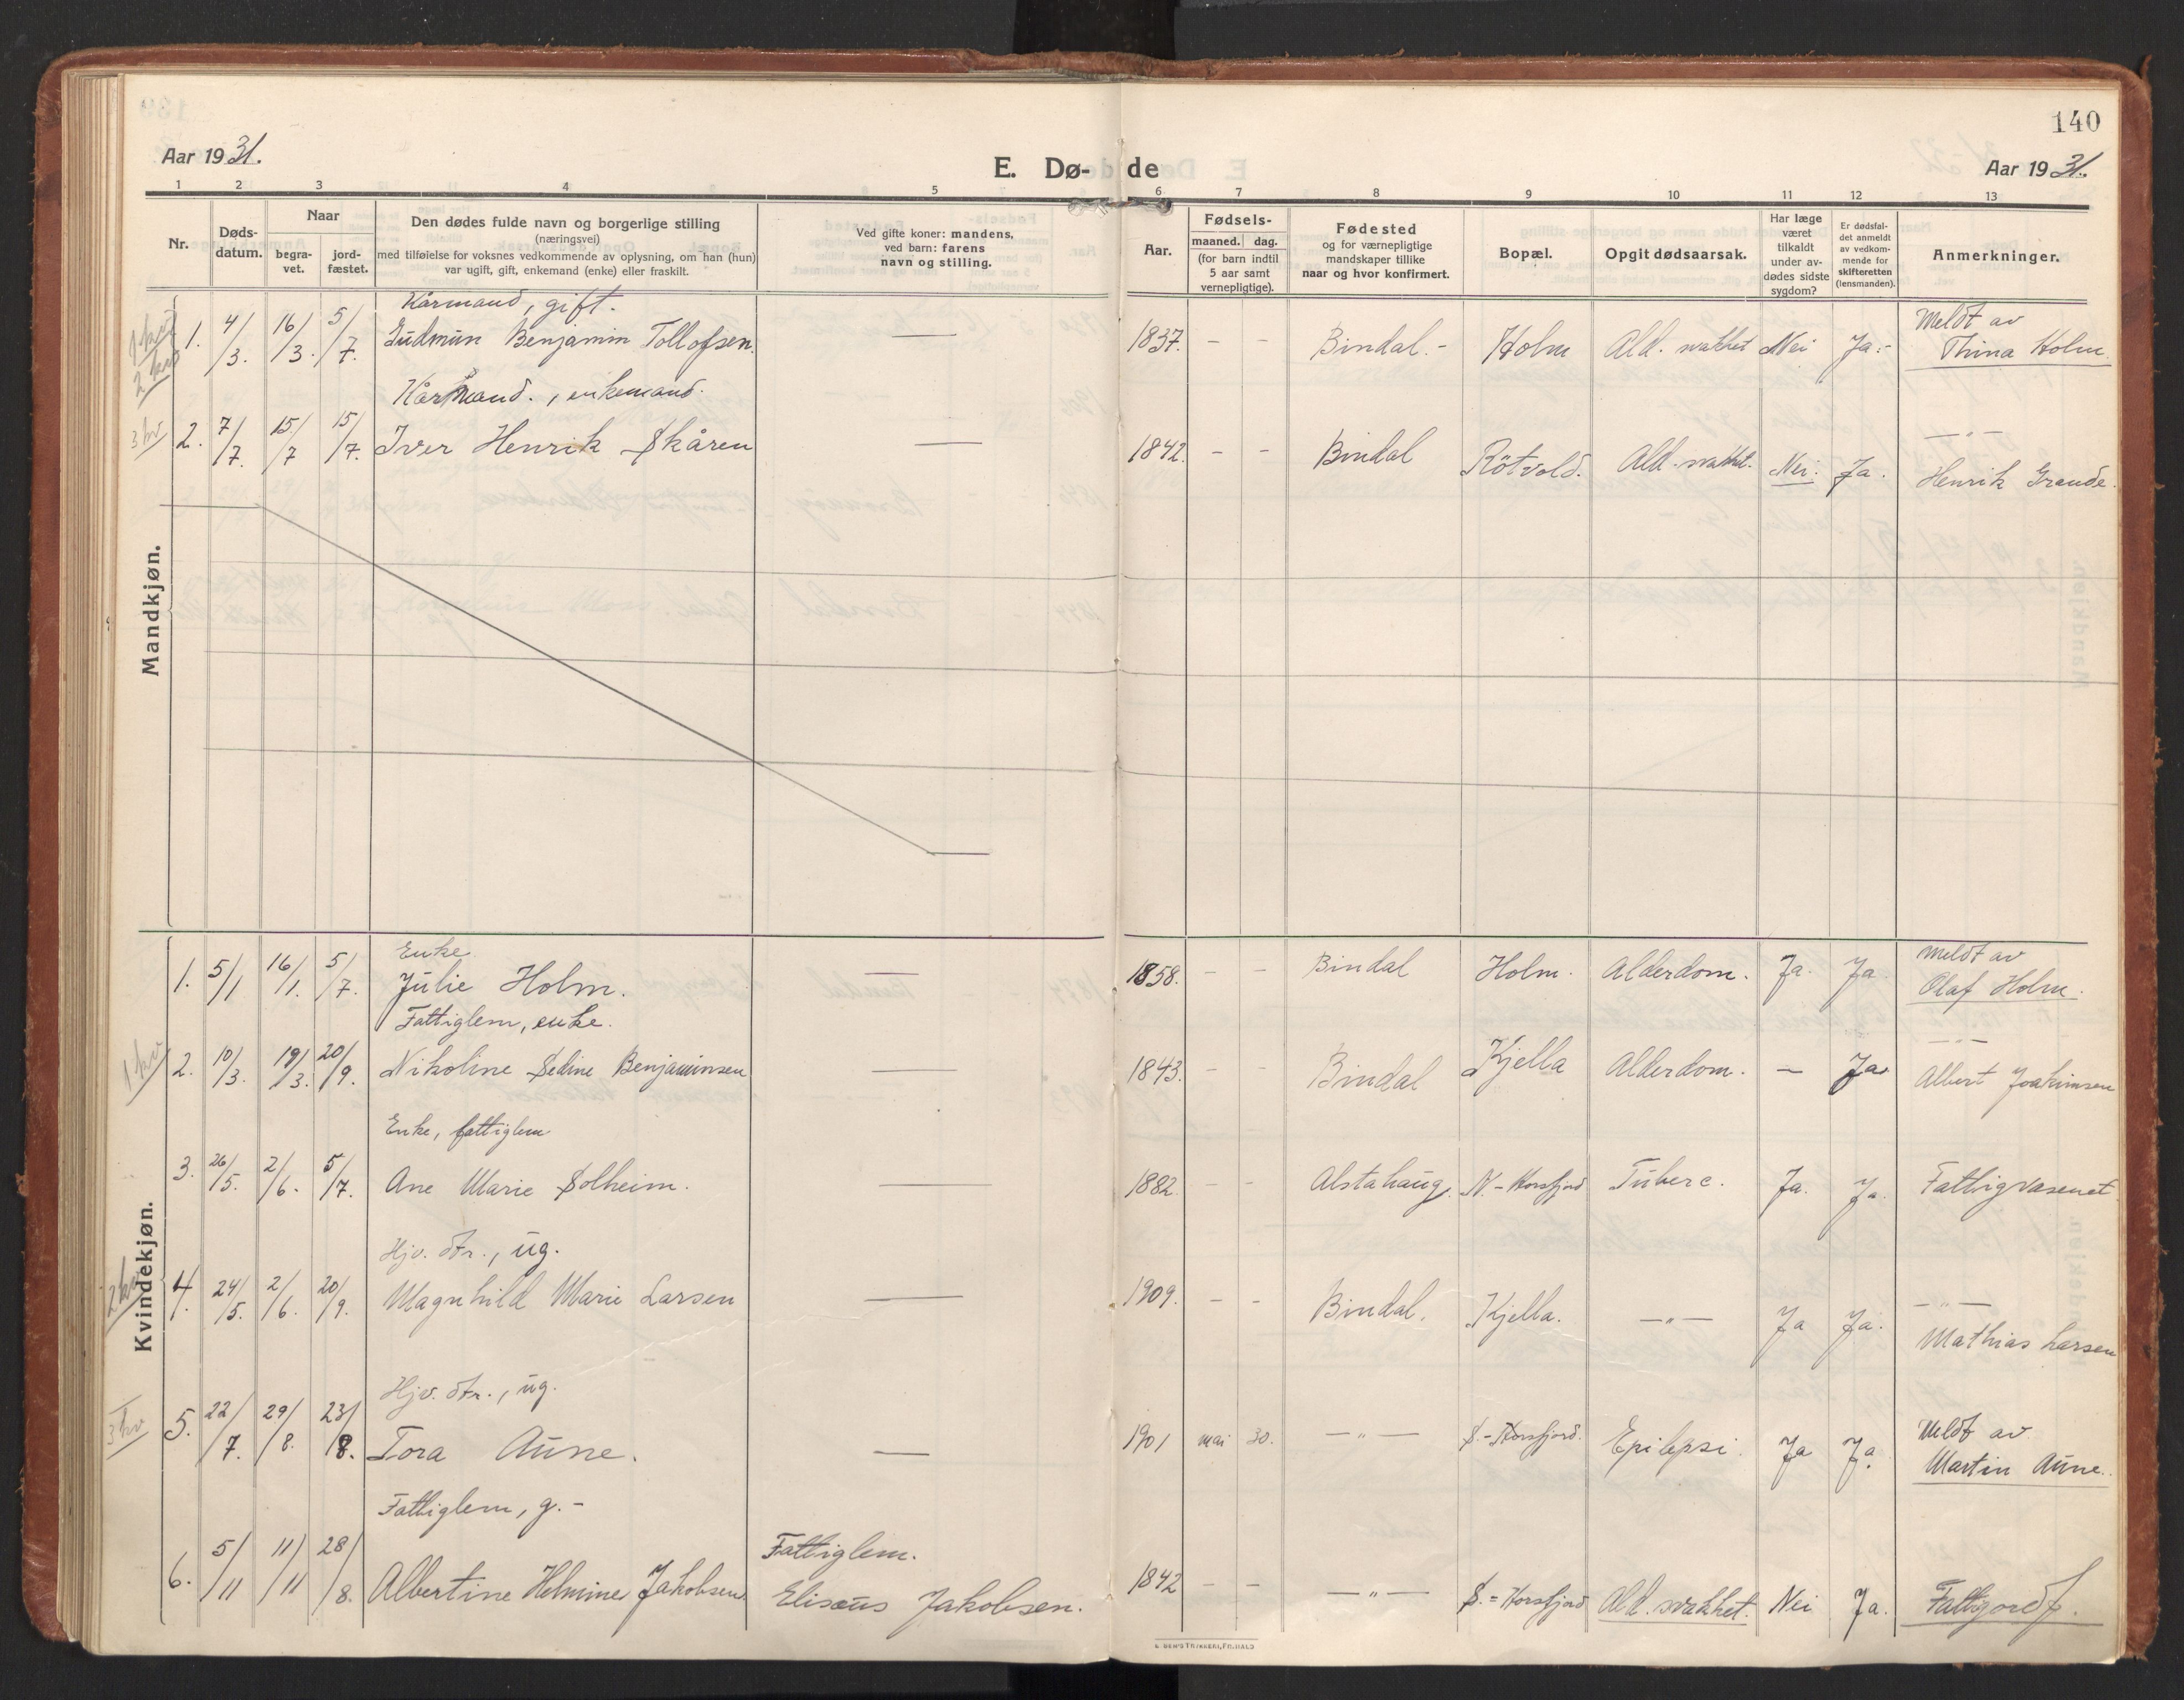 140
Aar 1931.
E. Dø-
de
Aar 1931.
1 2 3 4 5 6 7 8 9 10 11 12 13
Nr.
Døds-
datum.
Naar
begra-
vet.
jord-
fæstet.
Den dødes fulde navn og borgerlige stilling
(næringsvei)
med tilføielse for voksnes vedkommende av oplysning, om han (hun)
var ugift, gift, enkemand (enke) eller fraskilt.
Ved gifte koner: mandens,
ved barn: farens
navn og stilling.
Aar.
Fødsels-
maaned. dag.
(for barn indtil
5 aar samt
vernepligtige).
Fødested
og for værnepligtige
mandskaper tillike
naar og hvor konfirmert.
Bopæl.
Opgit dødsaarsak.
Har læge
været
tilkaldt
under av-
dødes sidste
sygdom?
Er dødsfal-
det anmeldt
av vedkom-
mende for
skifteretten
(lensmanden).
Anmerkninger.
Mandkjøn.
1 kv
2 kv
Kårmand, gift.
1. 4/3. 16/3. 5/7. Gudmün Benjamin Tollofsen. — 1837. - - Bindal.- Holm Ald. svakhet Nei Ja.- Meldt av
Thina Holm.
3 kv
Kårmand., enkemand.
2. 7/7. 15/7 15/7. Iver Henrik Skåren — 1842. - - Bindal Rötvold. Ald. svakhet. Nei. Ja. —"—
Henrik Grande.
Kvindekjøn.
Enke
1. 5/1 16/1. 5/7. Jülie Holm. — 1858. - - Bindal Holm. Alderdom. Ja. Ja Meldt av
Olaf Holm.
1 kv
Fattiglem, enke.
2. 10/3. 19/3. 20/9. Nikoline Sedine Benjaminsen — 1843. - - Bindal Kjella Alderdom. — Ja —"—
Albert Joakimsen
Enke, fattiglem
3. 26/5. 2/6. 5/7. Ane Marie Solheim. — 1882. - - Alstahaüg. N-Horsfjord Tüberc. Ja. Ja. Fattigvæsenet
2 kv
Hjv. dtr., üg.
4. 24/5. 2/6. 20/9. Magnhild Marie Larsen — 1909. - - Bindal. Kjella. —"— Ja Ja. —"—
Mathias Larsen
3 kv
Hjv. dtr., üg.
5. 22/7. 29/8. 23/8. Tora Aüne. — 1901 mai 30. —"— S.-Horsfjord. Epilepsi. Ja Ja. Meldt av
Martin Aüne.
Fattiglem, g.-
6. 5/11 11/11 28/8. Albertine Helmine Jakobsen. Fattiglem.
Elisæus Jakobsen. 1842 - - —"— S.=Horsfjord Ald. svakhet. Nei Ja.